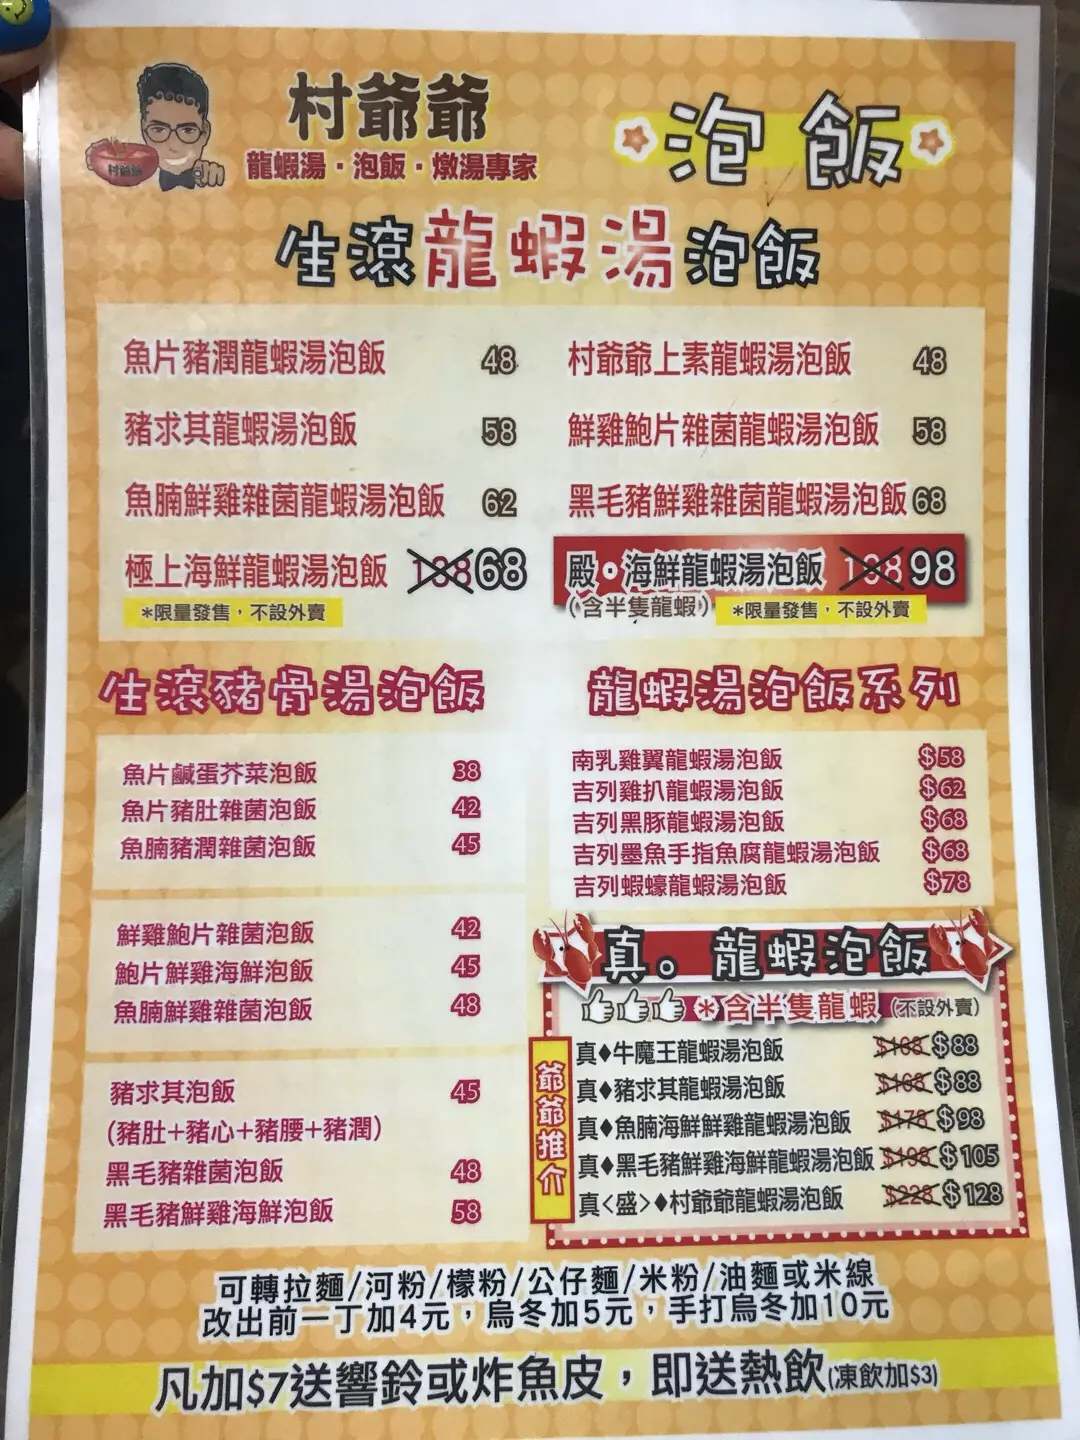 村爺爺
龍蝦湯·泡飯·燉湯專家
泡飯
生滾龍蝦湯泡飯
魚片豬潤龍蝦湯泡飯 48
豬求其龍蝦湯泡飯 58
魚腩鮮雞雜菌龍蝦湯泡飯 62
極上海鮮龍蝦湯泡飯 138 68
*限量發售，不設外賣
村爺爺上素龍蝦湯泡飯 48
鮮雞鮑片雜菌龍蝦湯泡飯 58
黑毛豬鮮雞雜菌龍蝦湯泡飯 68
殿·海鮮龍蝦湯泡飯 198 98
(含半隻龍蝦) *限量發售，不設外賣
生滾豬骨湯泡飯
魚片鹹蛋芥菜泡飯 38
魚片豬肚雜菌泡飯 42
魚腩豬潤雜菌泡飯 45
鮮雞鮑片雜菌泡飯 42
鮑片鮮雞海鮮泡飯 45
魚腩鮮雞雜菌泡飯 48
豬求其泡飯 45
(豬肚+豬心+豬腰+豬潤)
黑毛豬雜菌泡飯 48
黑毛豬鮮雞海鮮泡飯 58
龍蝦湯泡飯系列
南乳雞翼龍蝦湯泡飯 $58
吉列雞扒龍蝦湯泡飯 $62
吉列黑豚龍蝦湯泡飯 $68
吉列墨魚手指魚腐龍蝦湯泡飯 $68
吉列蝦蠔龍蝦湯泡飯 $78
真。龍蝦泡飯
*含半隻龍蝦 (不設外賣)
爺爺推介
真♦牛魔王龍蝦湯泡飯 $168 $88
真♦豬求其龍蝦湯泡飯 $168 $88
真♦魚腩海鮮鮮雞龍蝦湯泡飯 $178 $98
真♦黑毛豬鮮雞海鮮龍蝦湯泡飯 $198 $105
真<盛>♦村爺爺龍蝦湯泡飯 $228 $128
可轉拉麵/河粉/檬粉/公仔麵/米粉/油麵或米線
改出前一丁加4元，烏冬加5元，手打烏冬加10元
凡加$7送響鈴或炸魚皮，即送熱飲(凍飲加$3)
村爺爺